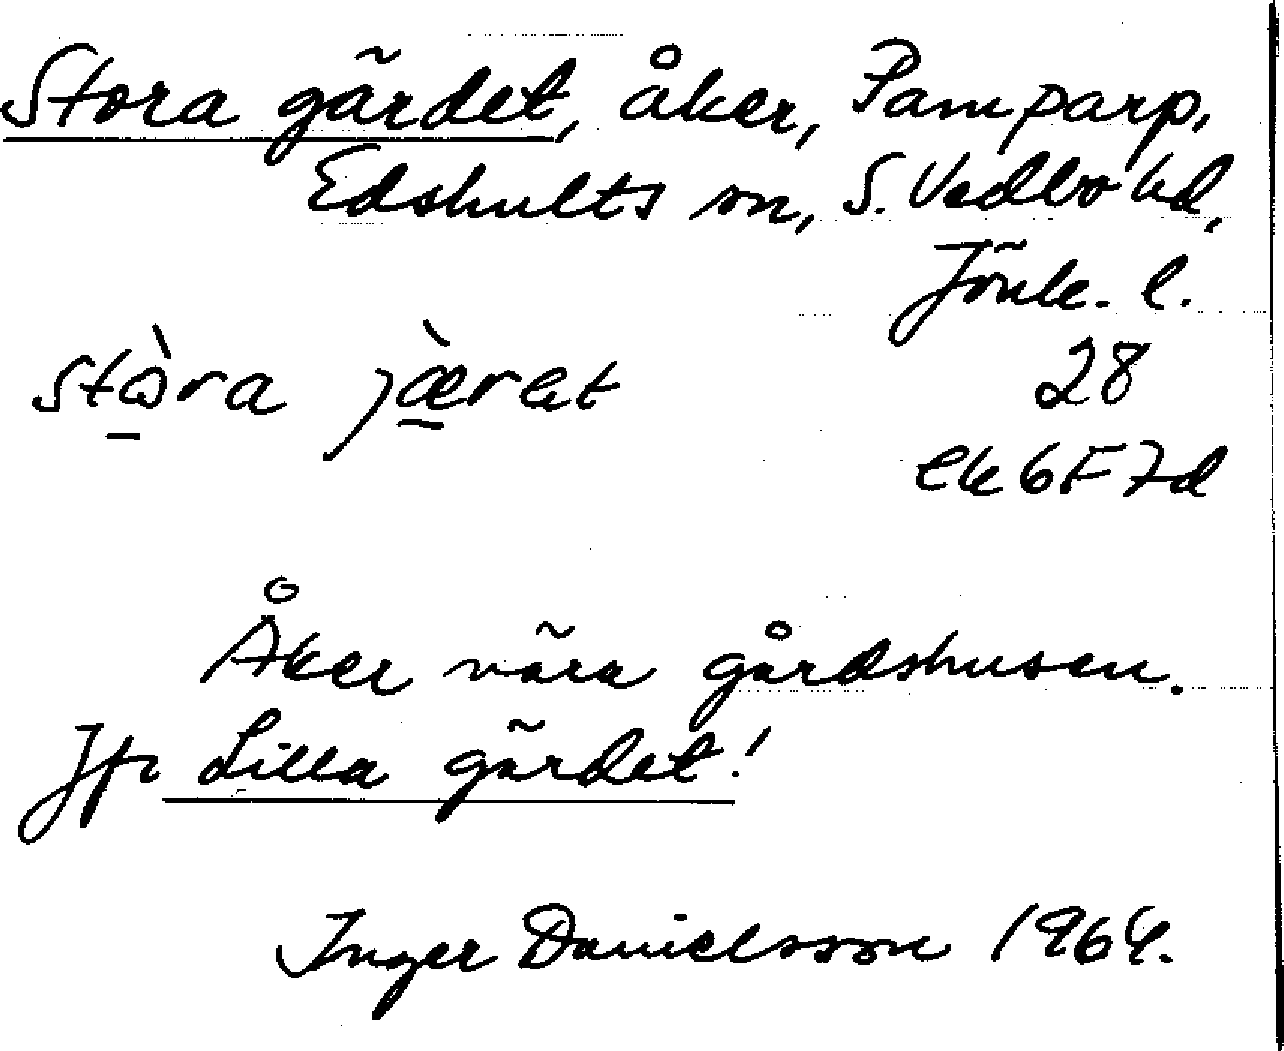 Stora gärdet, åker, Pamparp,
Edshults sn, S. Vedbo hd,
Jönk. l.
stòra jæ̀ret 28
ek 6F7d
Åker nära gårdshusen.
Jfr Lilla gärdet!
Inger Danielsson 1964.